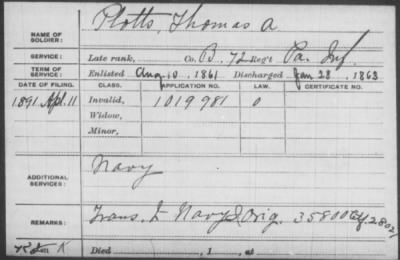 NAME OF SOLDIER: Plotts, Thomas A.
SERVICE: Late rank, Co. B, 72 Reg't Pa. Inf.
TERM OF SERVICE: Enlisted Aug. 10, 1861 Discharged Jan 28, 1863
DATE OF FILING. CLASS. APPLICATION NO. LAW. CERTIFICATE NO.
1891 Apl. 11 Invalid, 1019981 0
Widow,
Minor,
ADDITIONAL SERVICES: Navy
REMARKS: Trans. to Navy Orig. 35800
K
Died , 1 , at